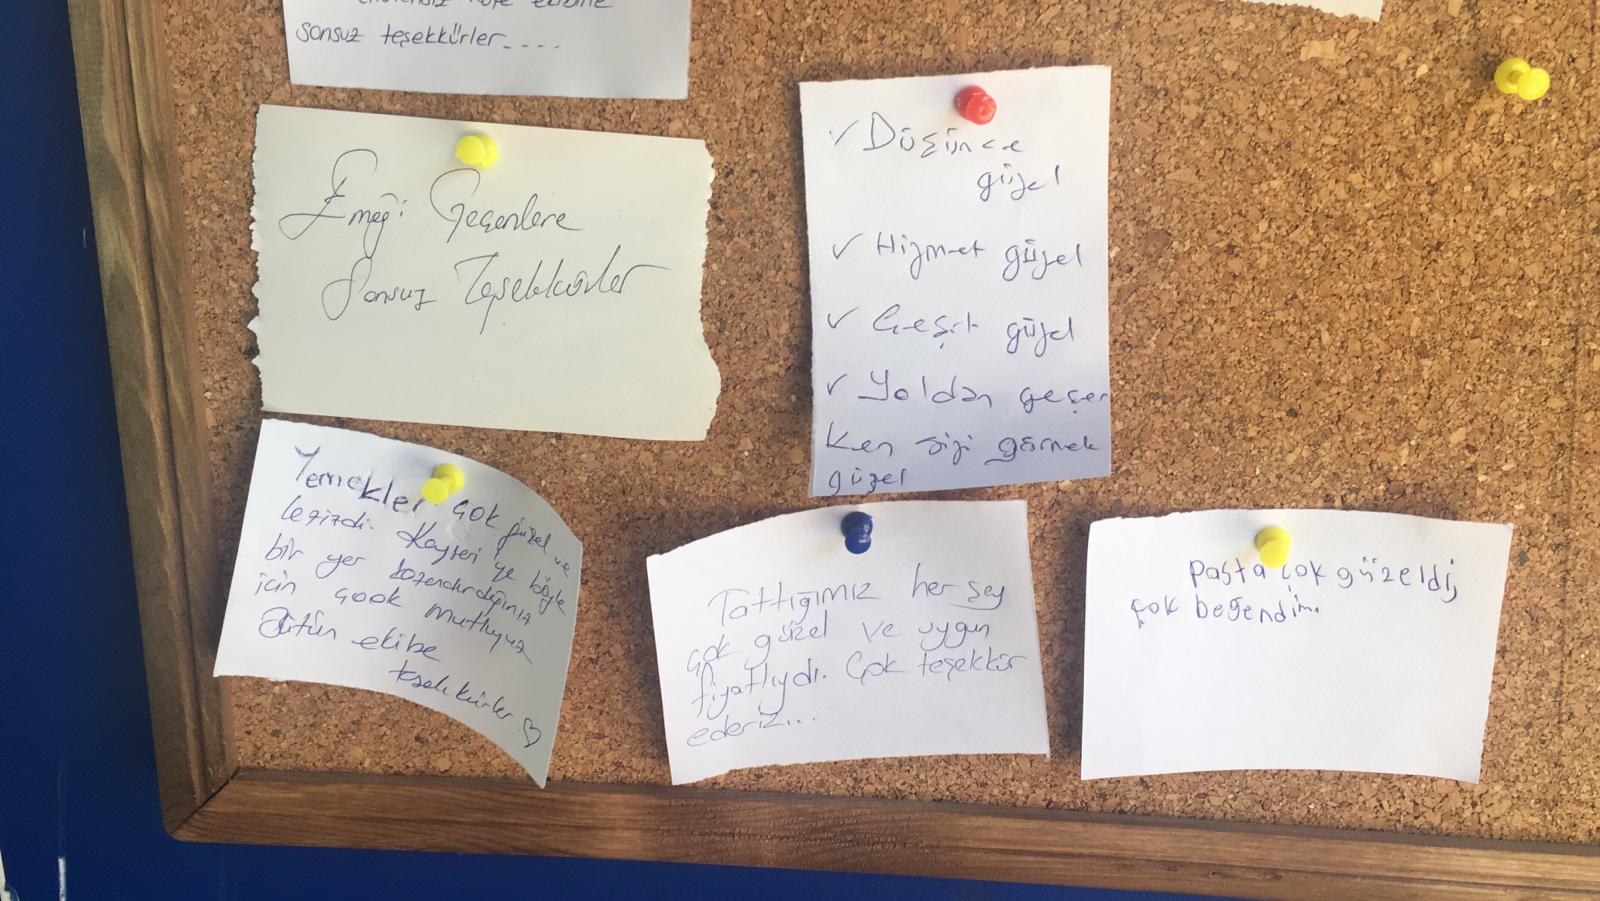 kafe ekibine
sonsuz teşekkürler....
Emeği Geçenlere
Sonsuz Teşekkürler
✓ Düşünce
güzel
✓ Hizmet güzel
✓ Çeşit güzel
✓ Yoldan geçer
ken sizi görmek
güzel
Yemekler çok güzel ve
lezizdi. Kayseri'ye böyle
bir yer kazandırdığınız
için çook mutluyuz
Bütün ekibe
teşekkürler ♡
Tattığımız her şey
çok güzel ve uygun
fiyatlıydı. Çok teşekkür
ederiz...
Pasta çok güzeldi,
çok beğendim.